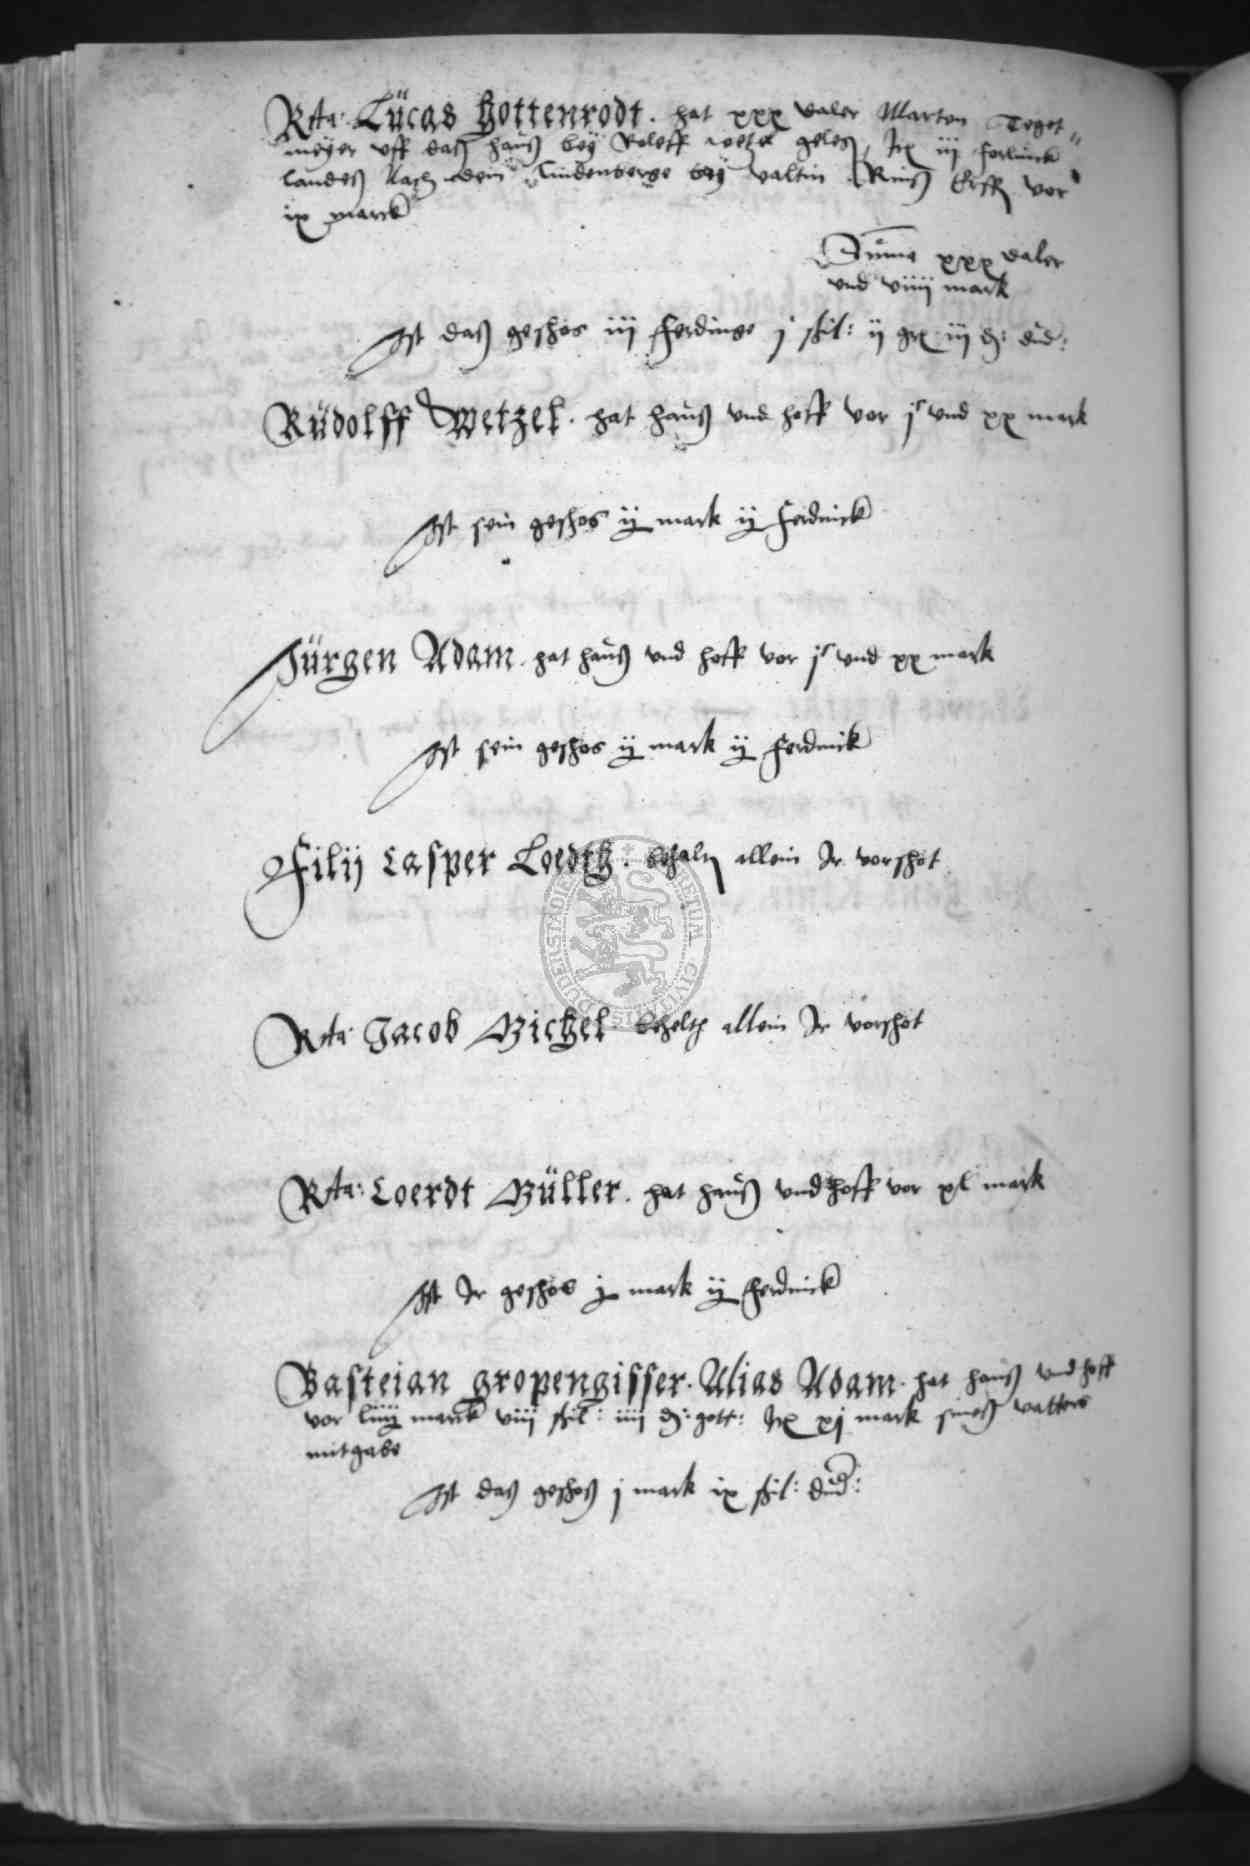 Rcta: Lücas Hottenrodt. hat xxx daler Marten Teget=
meyer vff daß hauß bey Roleff geleg, Itx iij forlinck
landeß Nach dem Lindenberge bey valtin Erff vor
ix marck
Suma xxx daler
vnd viiij mark
Ist daß geschos iij ferdinge j ßkil: ij gx iij d: dd:
Rüdolff Wetzel. hat hauß vnd hoff vor jc vnd xx mark
Ist sein geschos ij mark ij ferdinck
Jürgen Adam. hat hauß vnd hoff vor jc vnd xx mark
Ist sein geschos ij mark ij ferdinck
Filij Casper Loedth. allein Ir vorschot
Rcta Jacob Michel behelth allein Ir vorschot
Rcta: Coerdt Müller. hat hauß vnd hoff vor xl mark
Ist Ir geschos j mark ij ferdinck
Basteian gropengisser. Alias Adam. hat hauß vnd hoff
vor liiij marck viij ßkil: iiij d: gott: Itx xj mark seineß vatters
mitgabe
Ist daß geschoß j mark ix ßkil: dd:
DUDERSTADIENSIS CIVITATIS